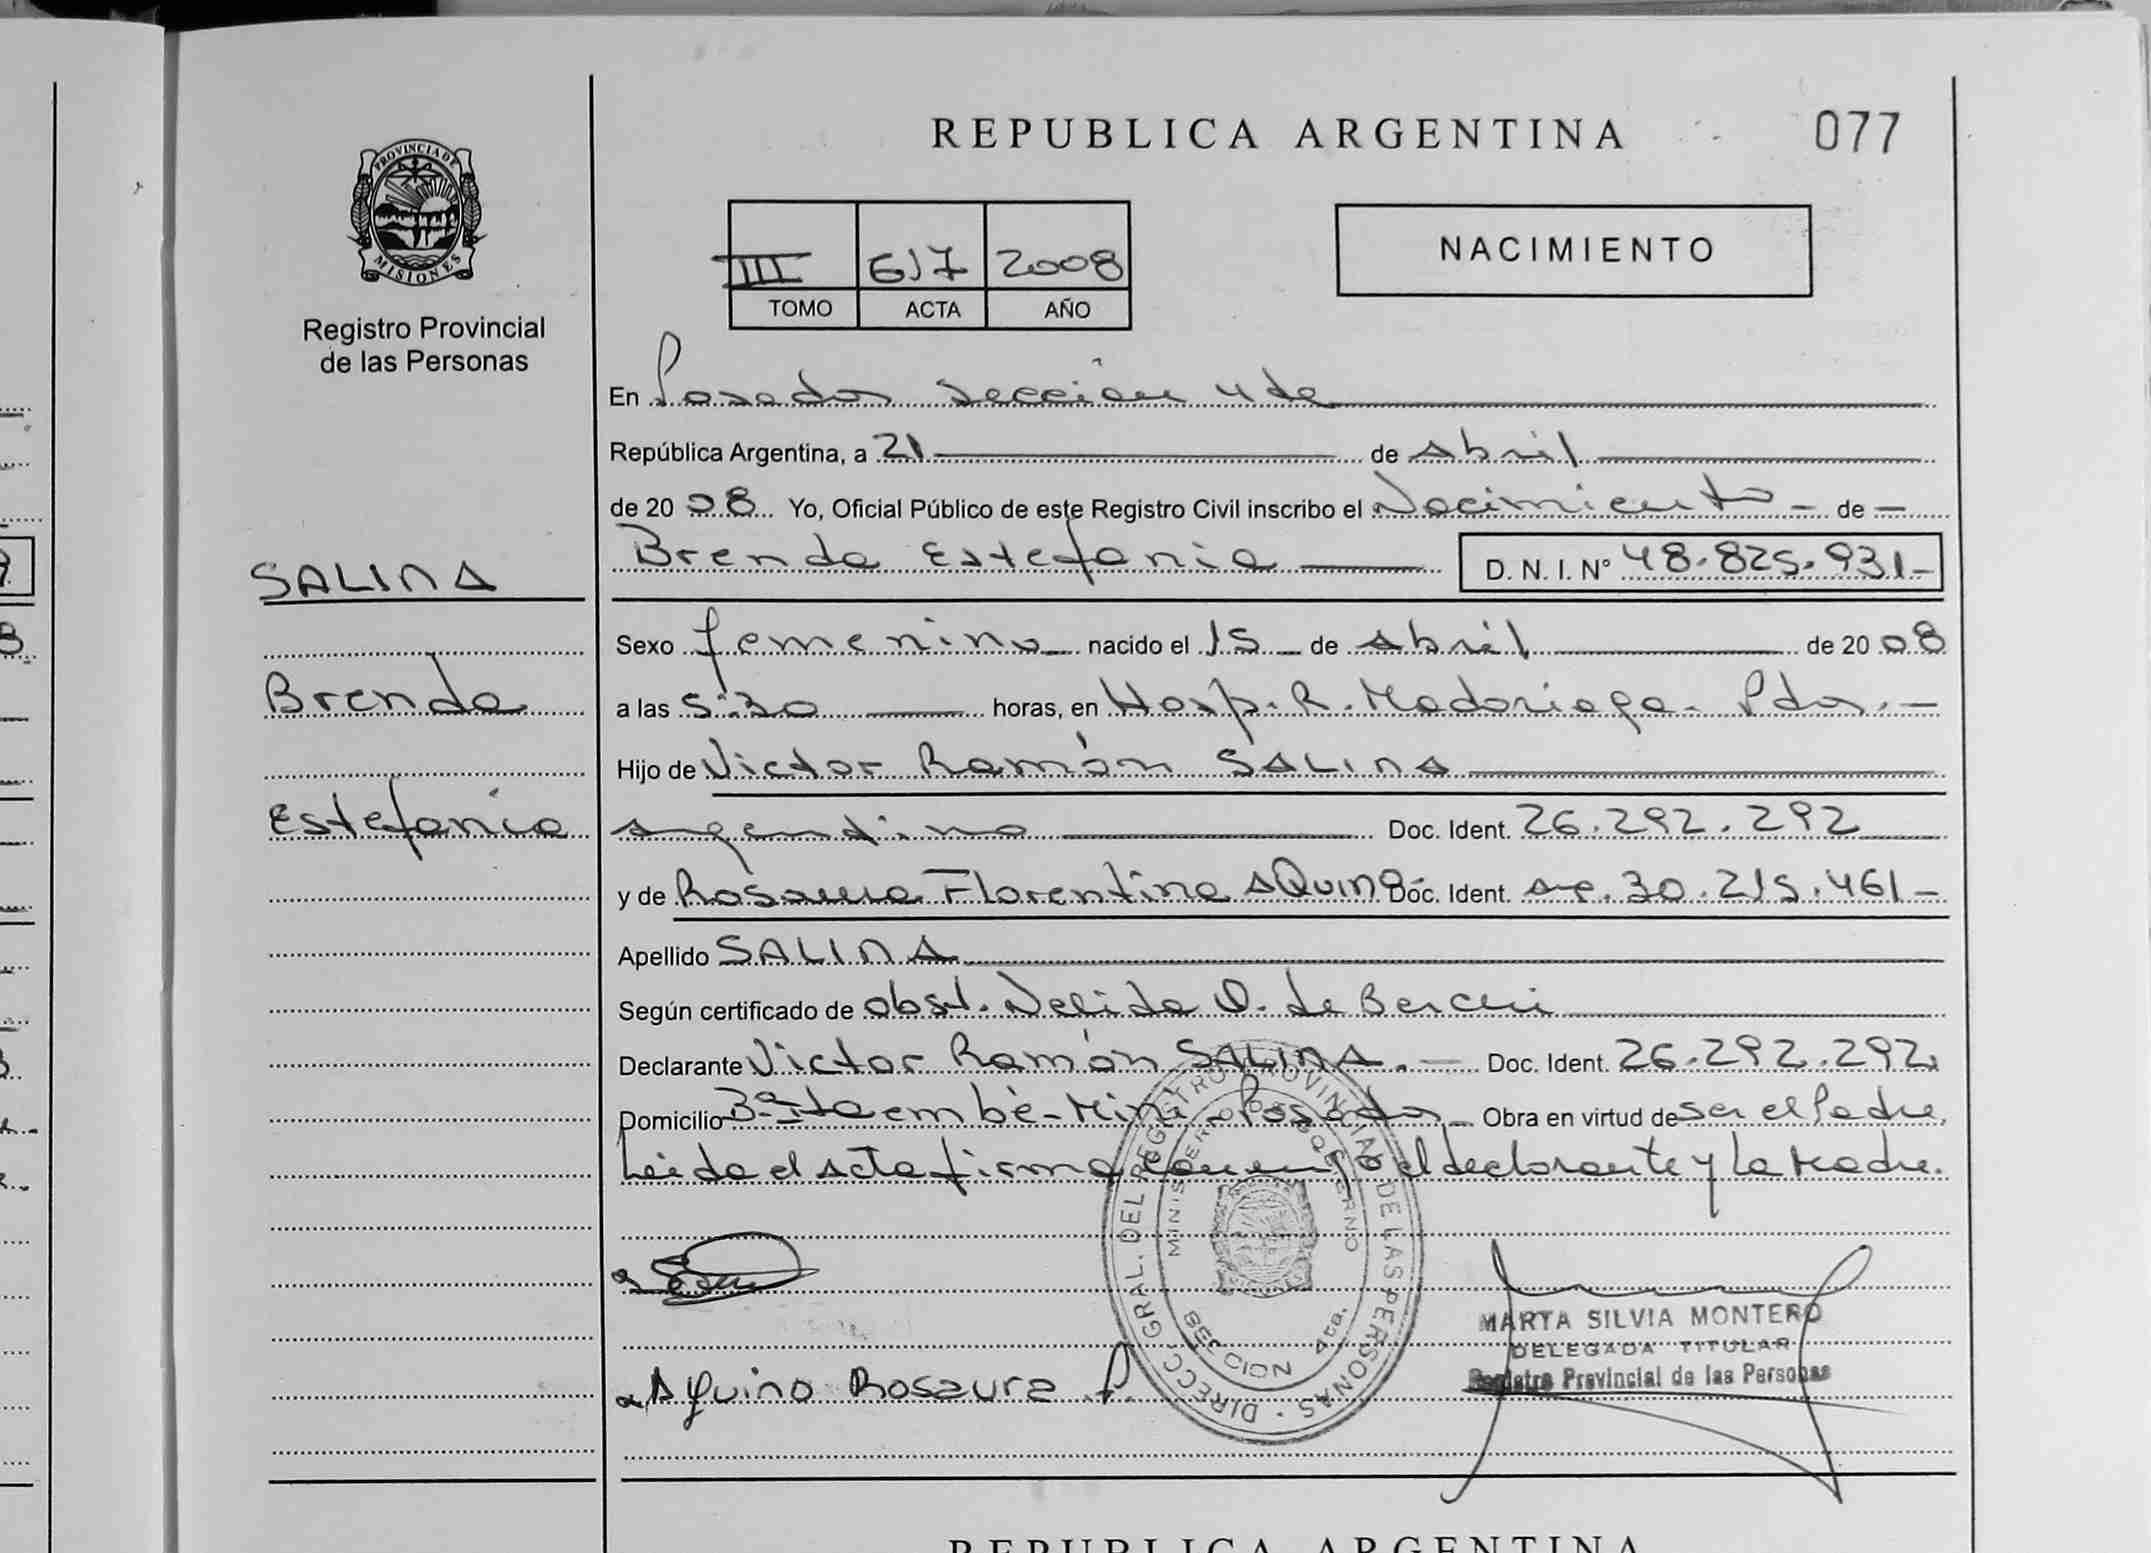 REPUBLICA ARGENTINA
077
PROVINCIA DE
MISIONES
Registro Provincial
de las Personas
III 617 2008
TOMO ACTA AÑO
NACIMIENTO
En Posadas sección 4 de
República Argentina, a 21 de Abril
de 20 08 Yo, Oficial Público de este Registro Civil inscribo el Nacimiento - de -
Brenda Estefania D. N. I. N° 48.825.931-
SALINA
Brenda
Estefania
Sexo femenino nacido el 15 de Abril de 20 08
a las 5:30 horas, en Hosp. R. Madariaga - Pdas. -
Hijo de Victor Ramón SALINA
argentino Doc. Ident. 26.292.292
y de Rosaura Florentina AQUINO Doc. Ident. 30.215.461-
Apellido SALINA
Según certificado de obst. Nelida O. de
Declarante Victor Ramón SALINA. - Doc. Ident. 26.292.292
Domicilio Itaembé-Miní - Posadas - Obra en virtud de ser el Padre.
Leida el acta firma conmigo el declarante y la Madre.
Aquino Rosaura F.
DIRECC. GRAL. DEL REGISTRO PROVINCIAL DE LAS PERSONAS
MINISTERIO DE GOBIERNO
SECCION 4ta.
MARTA SILVIA MONTERO
DELEGADA TITULAR
Registro Provincial de las Personas
REPUBLICA ARGENTINA